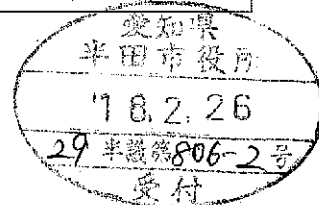 愛知県
半田市役所
'18.2.26
29 半議第806-2号
受付